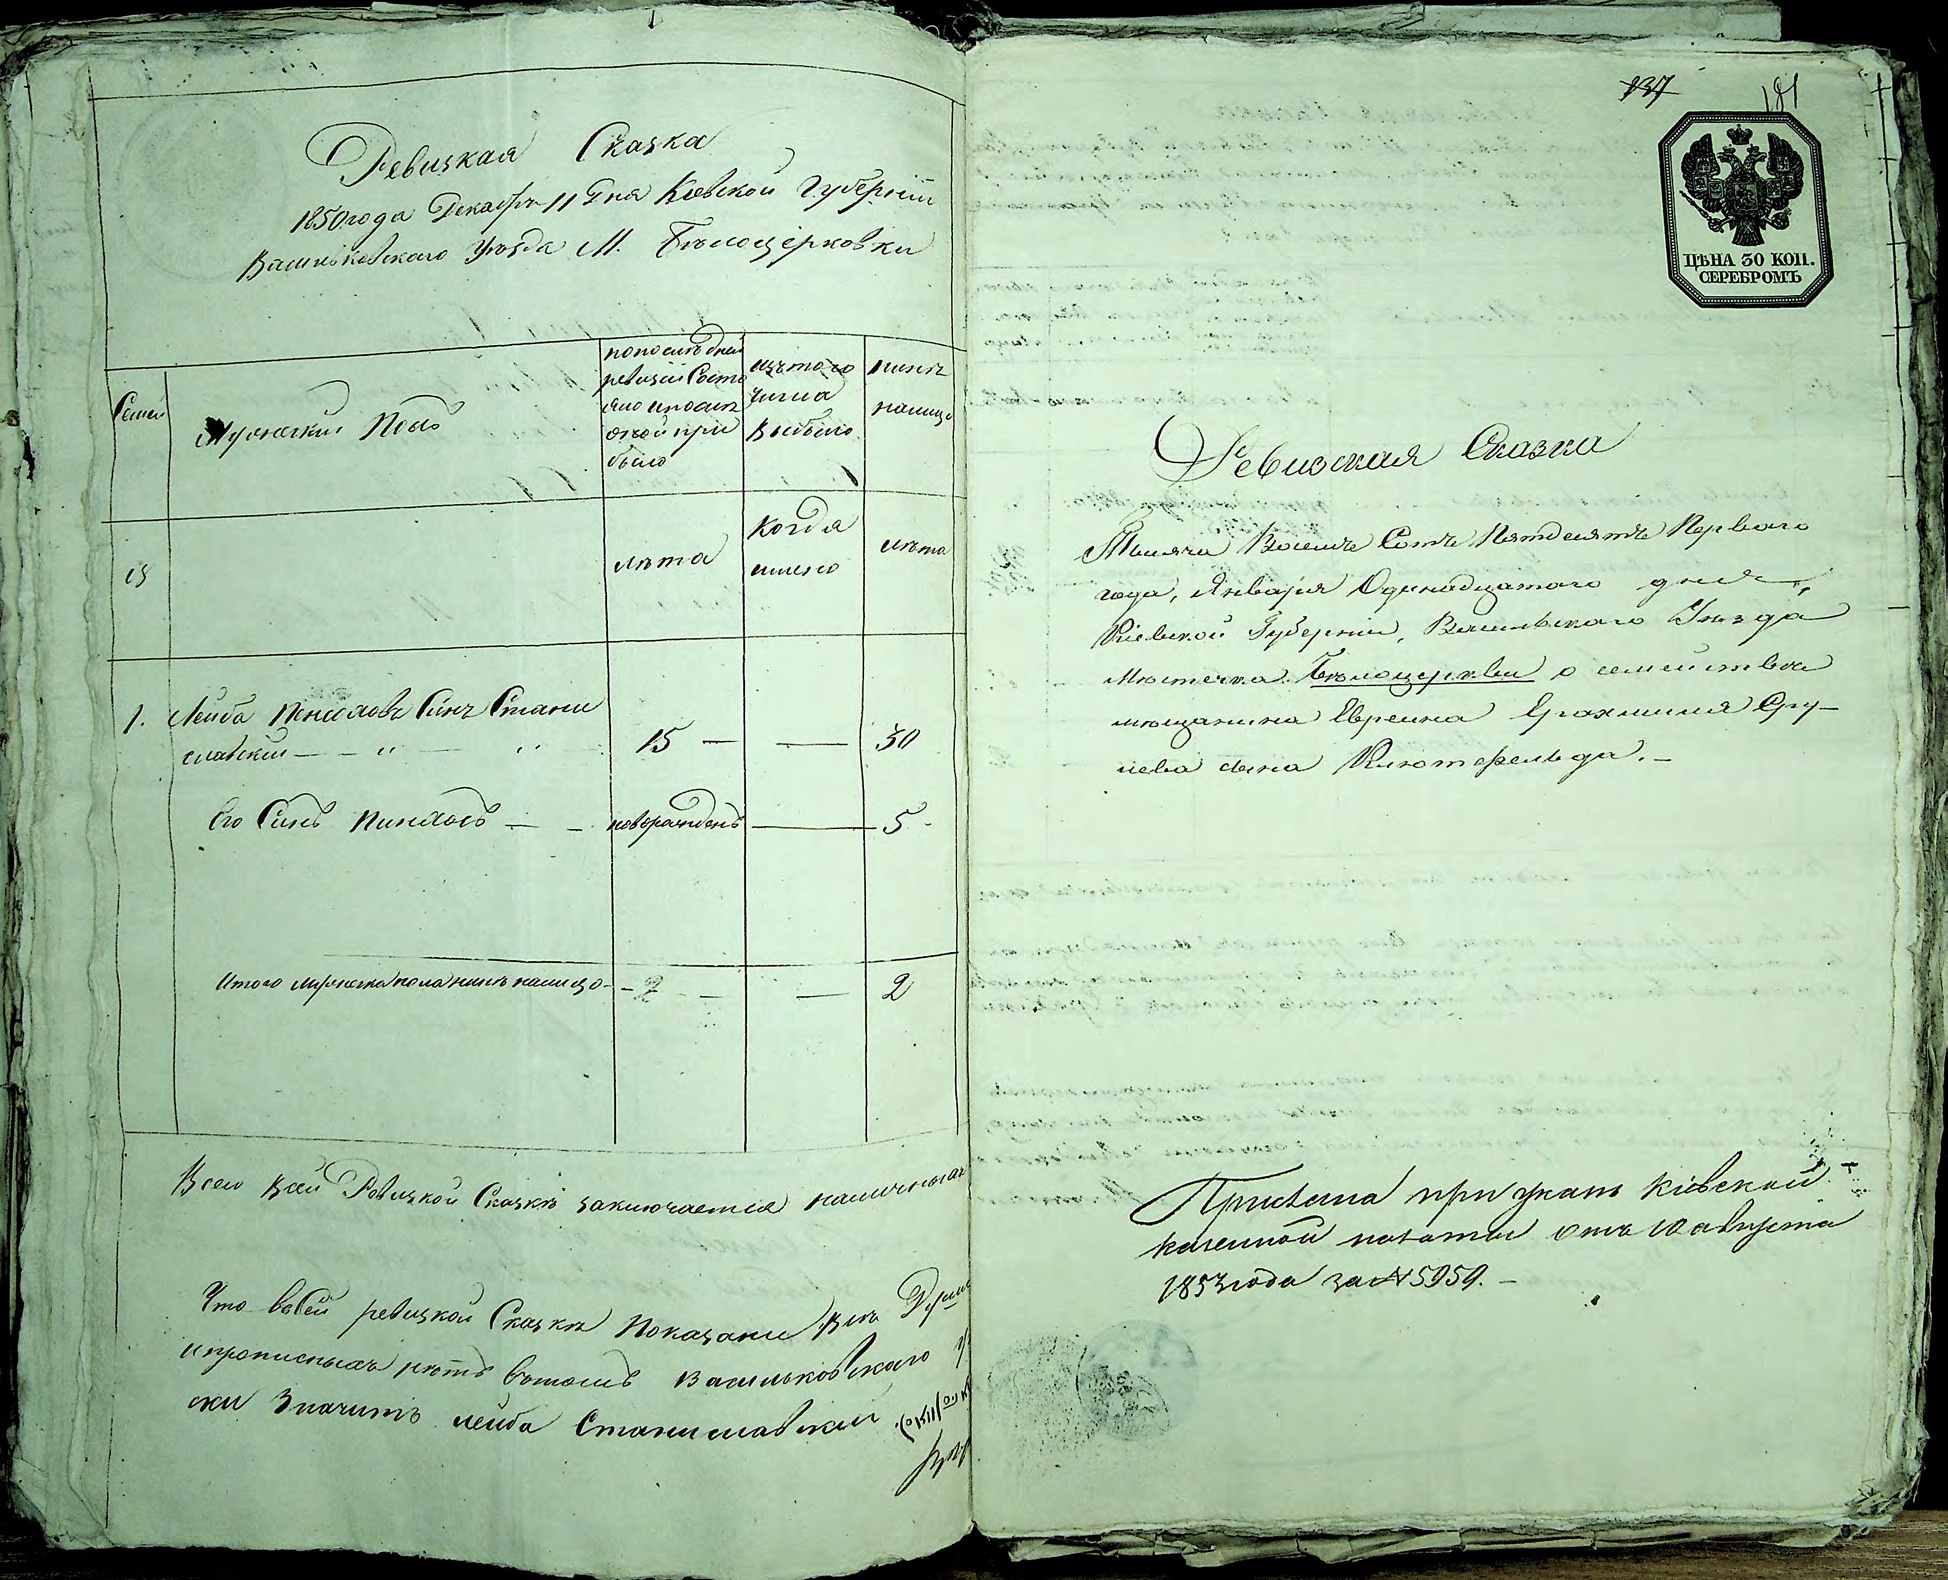 Ревизкая Сказка
1850 года Декабря 11 Дня Кіевской Губерніи
Васильковскаго Уѣзда М. Бѣлоцерковки
Семей
Мужескій Полъ
попослѣдней
ревизіи Состо
яло ипослѣ
оной при
было
изъ того
числа
Выбыло
нынѣ
налицо
лѣта
Когда
имено
лѣта
1.
Лейба Пенсаховъ Синъ Стани
славскій — — " — "
15 —
—
30
Его Синъ Пинхасъ — —
новорожденъ
—
5 -
Итого мужеска пола нинѣ налицо -
- 2 —
—
2
Всего Всей Ревизкой Сказкѣ заключается наличныхъ
Что всей ревизкой Сказкѣ Показани Всѣ Души
ипрописныхъ нѣтъ вътомъ Васильковскаго
ски Значитъ лейба Станиславскій
137
181
ЦѢНА 30 КОП.
СЕРЕБРОМЪ
Ревизская Сказка
Тысяча Восемъ Сотъ Пятдесятъ Перваго
года, Января Одинадцатого дня,
Кіевской Губерніи, Васильскаго Уѣзда
Мѣстечка Бѣлоцеркви о семействѣ
мѣщанина Евреина Ерахмиля Сру-
лева сына Клютерфельда. —
Прислана при указѣ Кіевской
казенной палаты отъ 10 августа
1853 года за № 5959. —